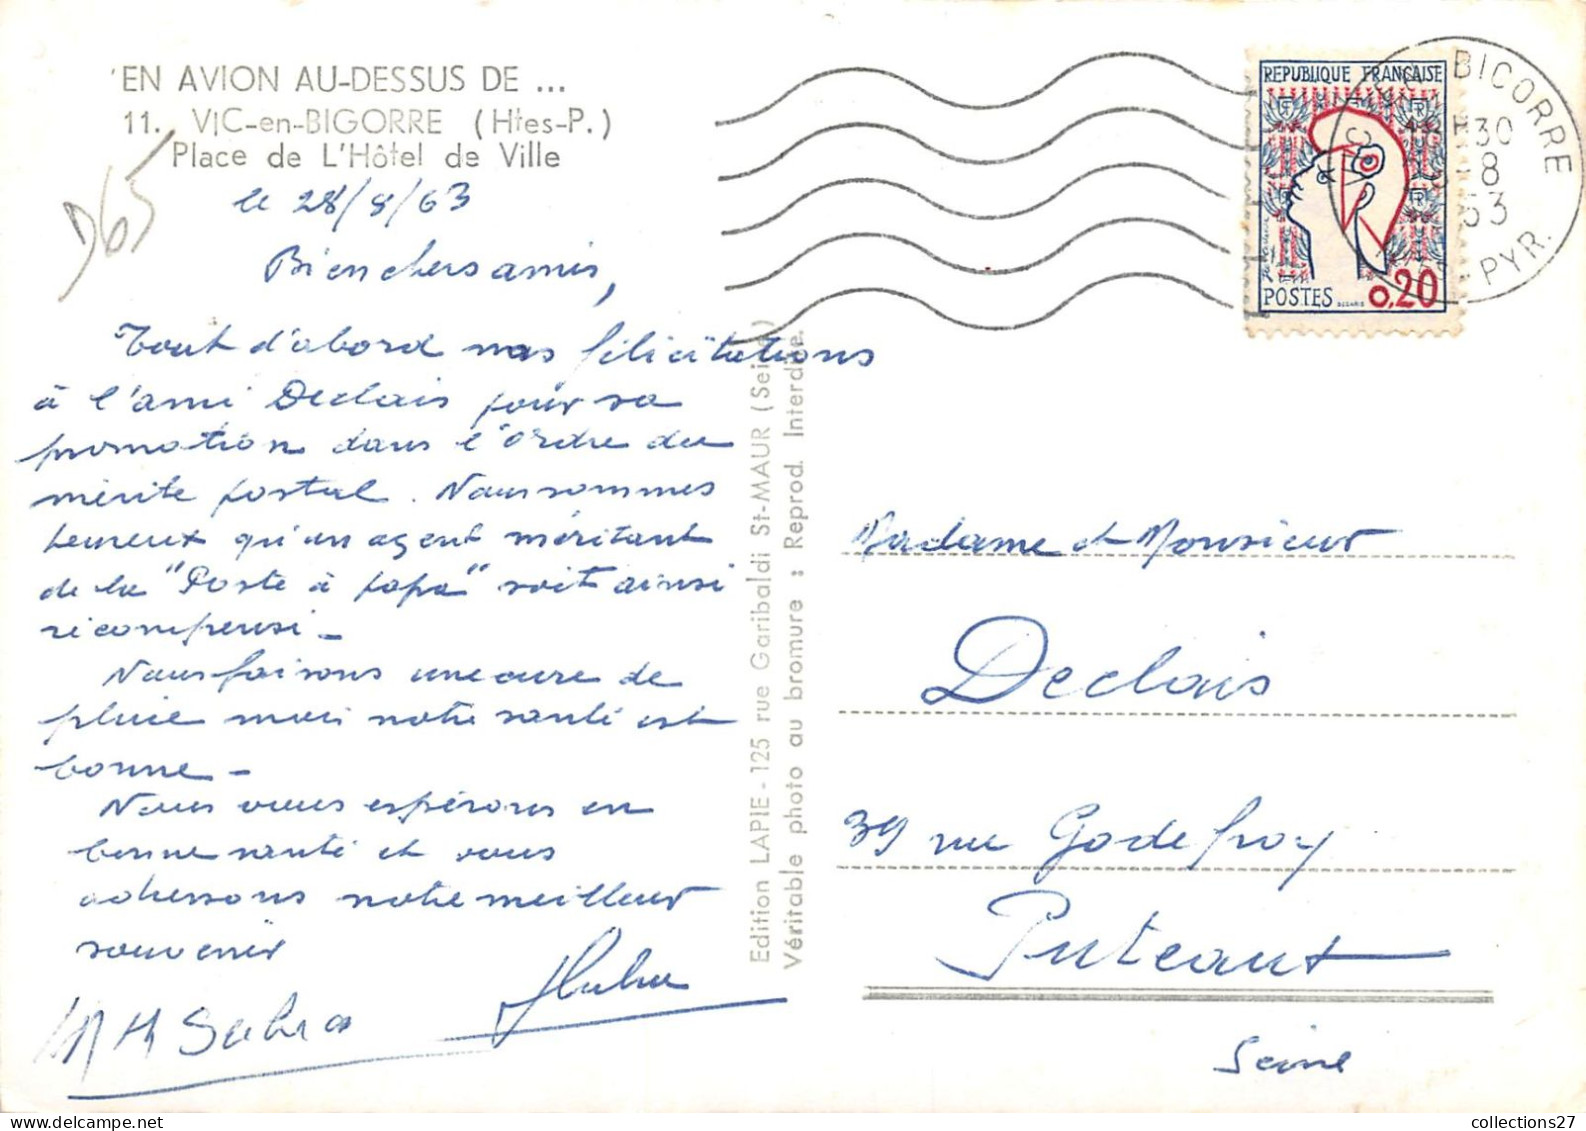 'EN AVION AU-DESSUS DE ...
11. VIC-en-BIGORRE (Htes-P.)
Place de L'Hôtel de Ville
D65
le 28/8/63
Bien chers amis,
Tout d'abord nos félicitations
à l'ami Declais pour sa
promotion dans l'ordre du
mérite postal. Nous sommes
heureux qu'un agent méritant
de la "Poste à papa" soit ainsi
récompensé -
Nous faisons une cure de
pluie mais notre santé est
bonne -
Nous vous espérons en
bonne santé et vous
adressons notre meilleur
souvenir
Edition LAPIE - 125 rue Garibaldi St-MAUR (Seine)
Véritable photo au bromure : Reprod. Interdite.
REPUBLIQUE FRANÇAISE
POSTES
0,20
BIGORRE
30
8
63
PYR.
Madame et Monsieur
Declais
39 rue Godefroy
Puteaux
Seine
collections27